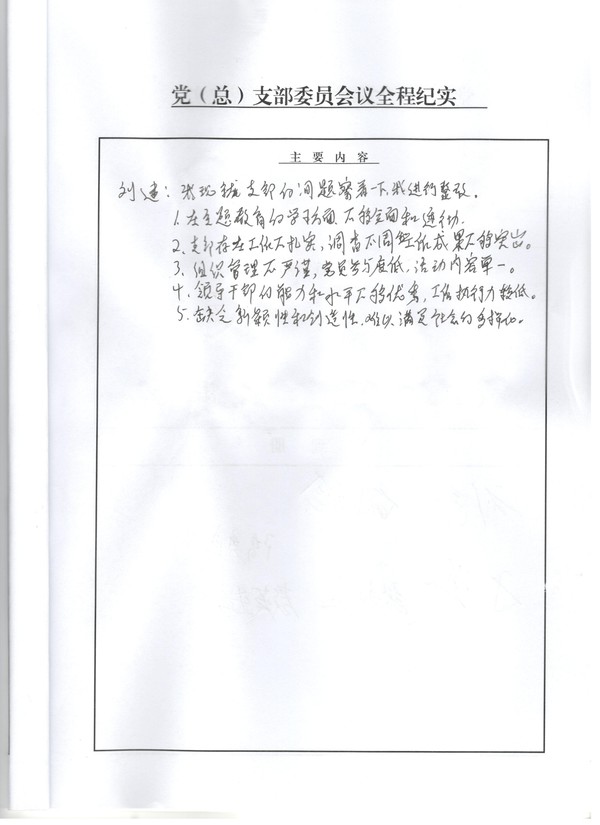 党（总）支部委员会议全程纪实
主 要 内 容
刘建：我就支部的问题察看一下，我进行整改。
1.在主题教育的学习方面不够全面和通彻.
2.支部存在工作不扎实，调查不周，工作成果不够突出。
3.组织管理不严谨，党员参与度低，活动内容单一。
4.领导干部的能力和水平不够优秀，工作执行力较低。
5.缺乏新颖性和创造性，难以满足社会的多样化。